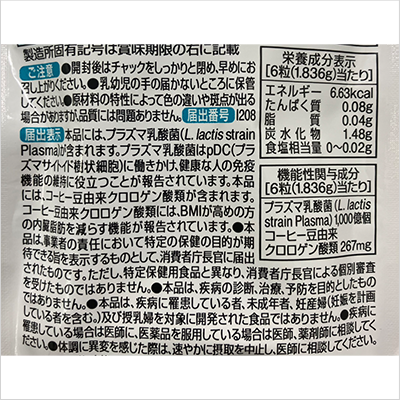 製造所固有記号は賞味期限の右に記載
ご注意 ●開封後はチャックをしっかりと閉め、早めにお
召し上がりください。●乳幼児の手の届かないところに保管
してください。●原材料の特性によって色の違いや斑点が出る
場合がありますが品質には問題ありません。 届出番号 I208
届出表示 本品には、プラズマ乳酸菌(L. lactis strain
Plasma)が含まれます。プラズマ乳酸菌はpDC(プラ
ズマサイトイド樹状細胞)に働きかけ、健康な人の免疫
機能の維持に役立つことが報告されています。本品
には、コーヒー豆由来クロロゲン酸類が含まれます。
コーヒー豆由来クロロゲン酸類には、BMIが高めの方
の内臓脂肪を減らす機能が報告されています。●本
品は、事業者の責任において特定の保健の目的が期
待できる旨を表示するものとして、消費者庁長官に届出
されたものです。ただし、特定保健用食品と異なり、消費者庁長官による個別審査
を受けたものではありません。●本品は、疾病の診断、治療、予防を目的としたもの
ではありません。●本品は、疾病に罹患している者、未成年者、妊産婦(妊娠を計画
している者を含む。)及び授乳婦を対象に開発された食品ではありません。●疾病に
罹患している場合は医師に、医薬品を服用している場合は医師、薬剤師に相談してく
ださい。●体調に異変を感じた際は、速やかに摂取を中止し、医師に相談してください。
栄養成分表示
[6粒(1.836g)当たり]
エネルギー 6.63kcal
たんぱく質 0.08g
脂質 0.04g
炭水化物 1.48g
食塩相当量 0〜0.02g
機能性関与成分
[6粒(1.836g)当たり]
プラズマ乳酸菌(L. lactis
strain Plasma) 1,000億個
コーヒー豆由来
クロロゲン酸類 267mg